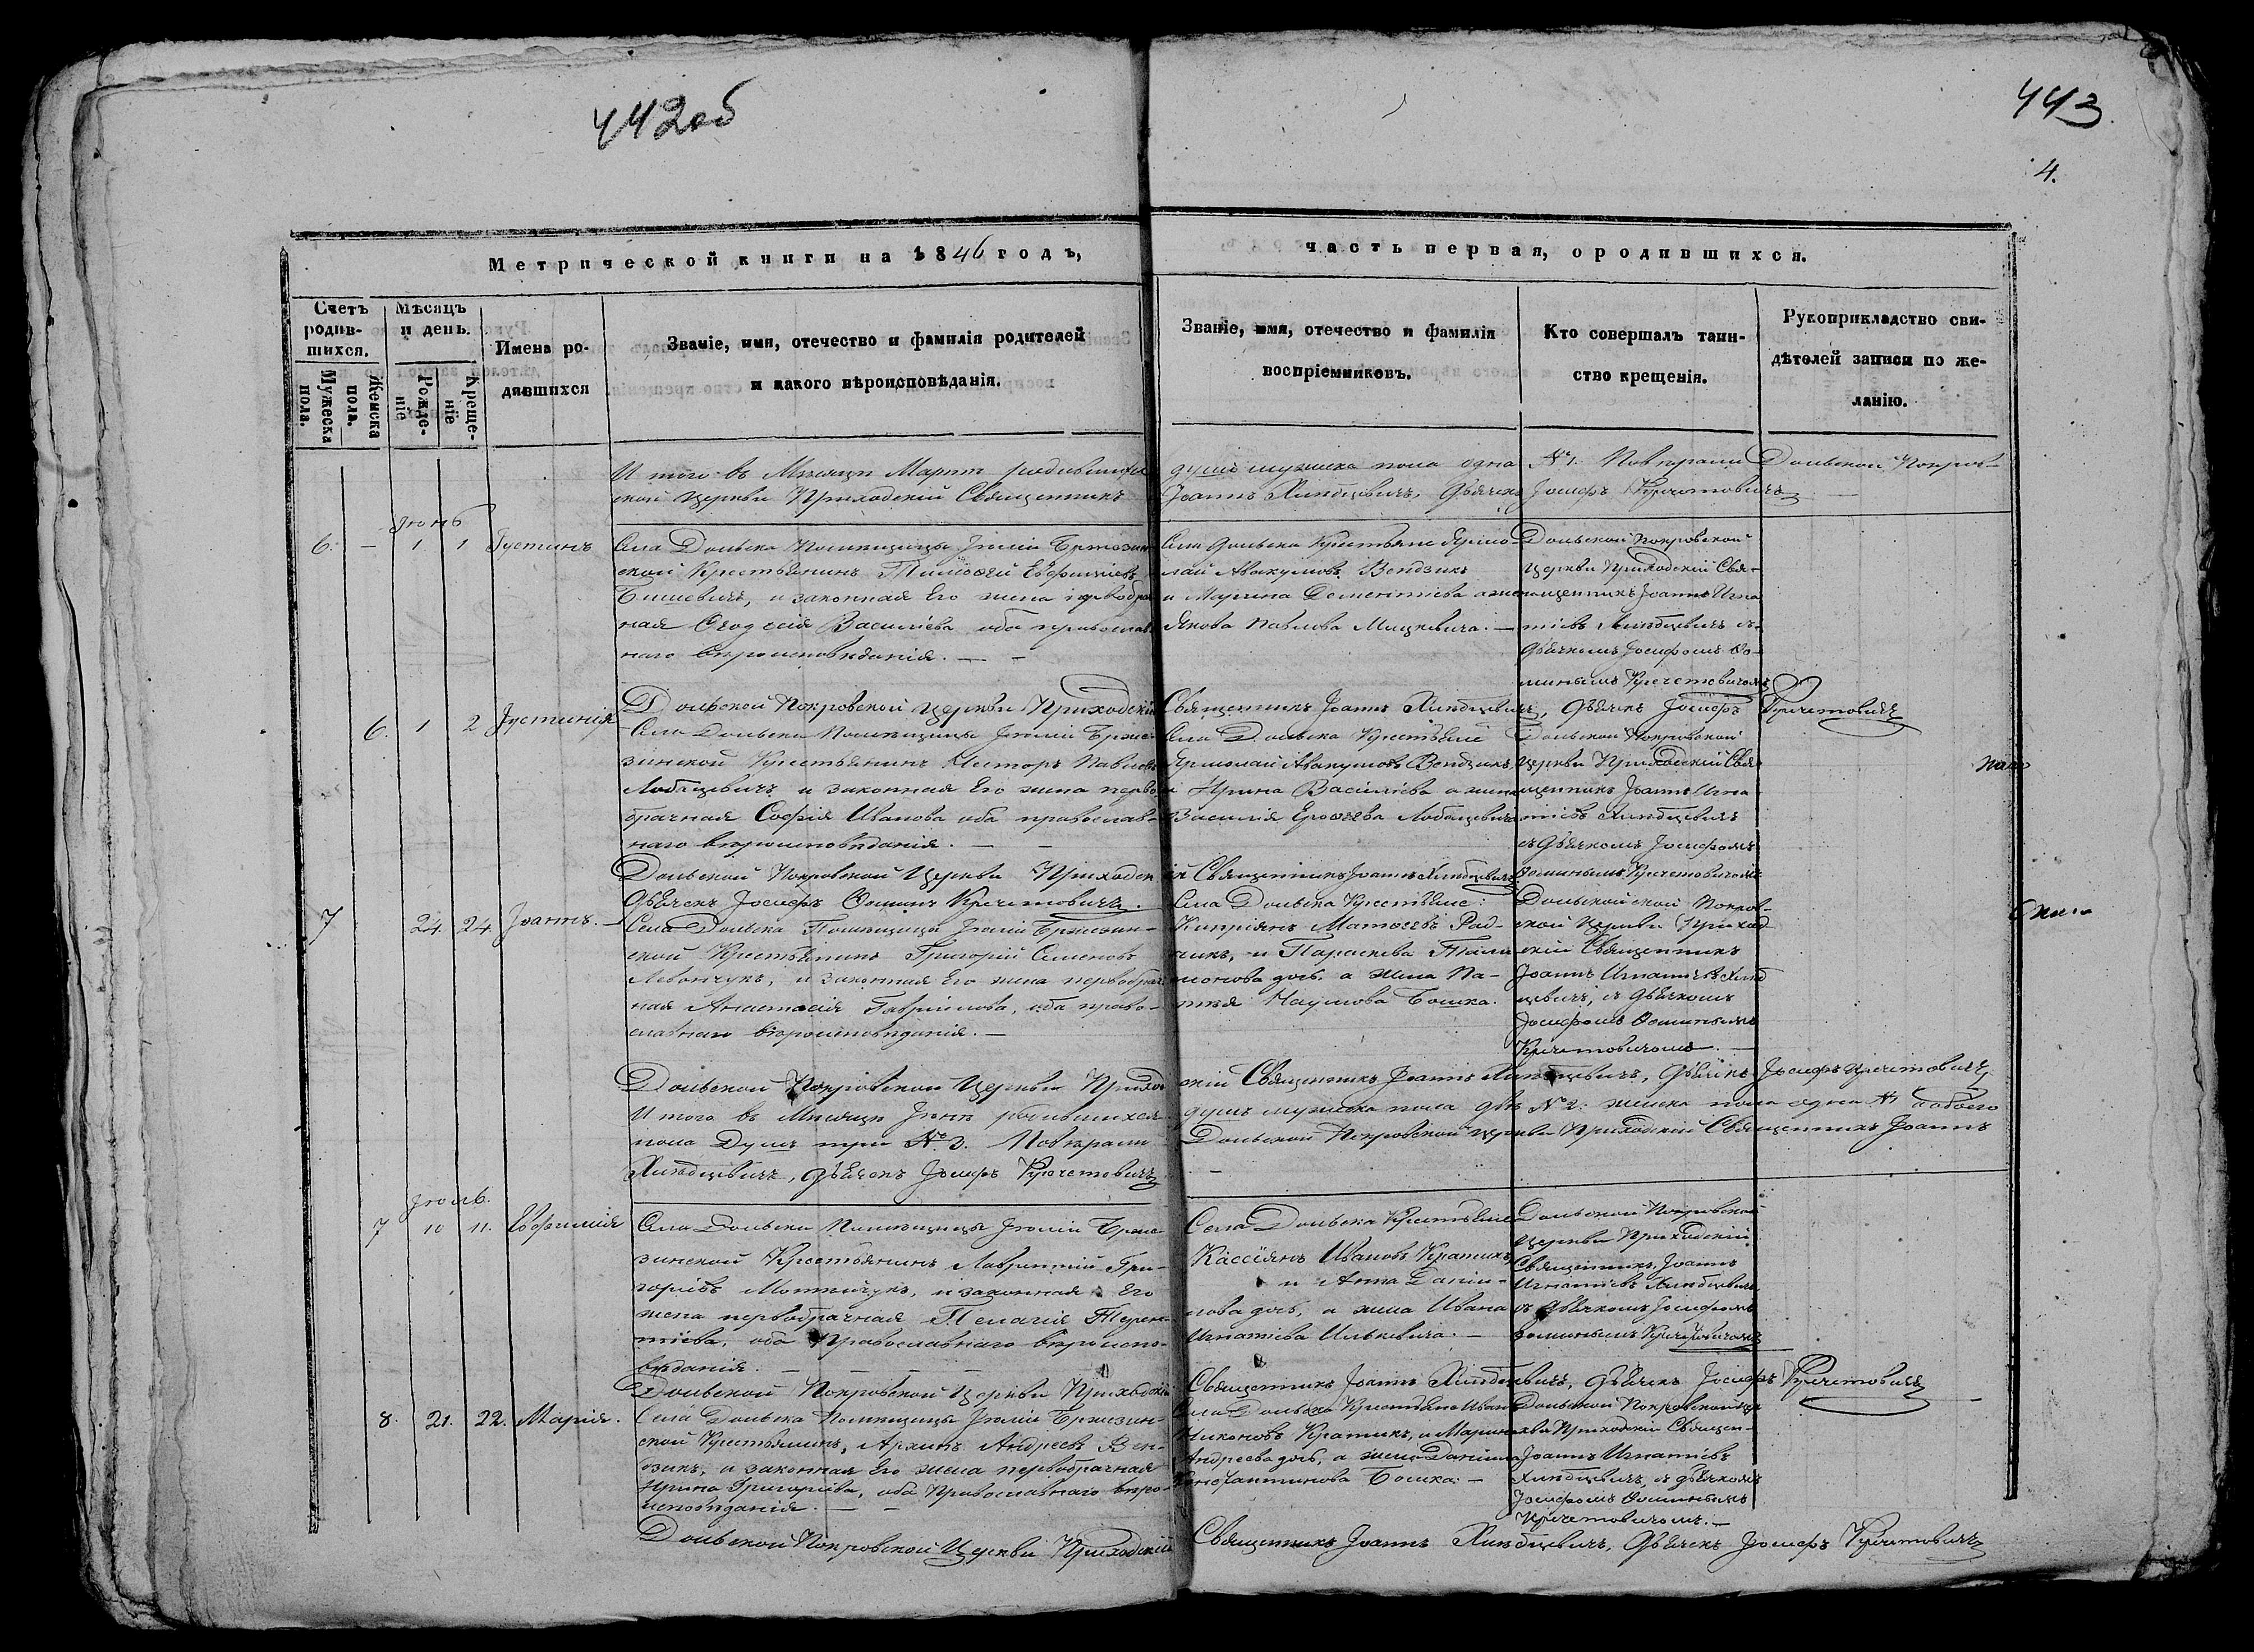 442об
443
4.
Метрической книги на 1846 годъ,
часть первая, ородившихся.
Счетъ родив-шихся.
Мужеска пола.
Женска пола.
Мѣсяцъ и день.
Рожде-ніе
Креще-ніе
Имена ро-дившихся
Званіе, имя, отечество и фамилія родителей
и какого вѣроисповѣданія.
Званіе, имя, отечество и фамилія
воспріемниковъ.
Кто совершалъ таин-
ство крещенія.
Рукоприкладство сви-
дѣтелей записи по же-
ланію.
И того въ Мѣсяцѣ Мартѣ родившихся душъ мужеска пола одна № 1. Повѣряли Дольской Покров-
ской Церкви Приходскій Священникъ Іоаннъ Дьячекъ Іосифъ Кречетовичъ
Іюнь
6. – 1. 1 Іустинъ
Села Дольска Помѣщицы Іюліи
ской Крестьянинъ Тимоѳей
и законная Его жена первобрач
ная Ѳеодосія Василіева оба православ
наго вѣроисповѣданія. — –
Села Дольска Крестьяне Ярмо-
лай Авакумовъ Вендзикъ
и Марина Дементіева а жена
Якова Павлова Мицкевича. —
Дольской Покровской
Церкви Приходскій Свя-
щенникъ Іоаннъ Игна
тіевъ съ
Дьячкомъ Іосифомъ Ѳо-
минымъ Кречетовичомъ
Дольской Покровской Церкви Приходскій Священникъ Іоаннъ Дьячекъ Іосифъ Кречетовичъ
6. 1 2 Іустинія
Села Дольска Помѣщицы Іюліи Брже-
зинской Крестьянинъ Несторъ Павловъ
Лобацевичъ и законная Его жена перво
брачная Софія Иванова оба православ-
наго вѣроисповѣданія. — –
Села Дольска Крестьяне
Ярмолай Авакумовъ Вендзикъ,
и Ирина Василіева а жена
Василія Ероѳѣева Лобацевича
Дольской Покровской
Церкви Приходскій Свя-
щенникъ Іоаннъ Игна
тіевъ
съ Дьячкомъ Іосифомъ
Ѳоминымъ Кречетовичомъ
Дольской Покровской Церкви Приходскій Священникъ Іоаннъ
Дьячекъ Іосифъ Ѳоминъ Кречетовичъ.
7 24 24 Іоаннъ. –
Села Дольска Помѣщицы Іюліи Бржезин-
ской Крестьянинъ Григорій Семеновъ
Левончукъ, и законная Его жена первобрач
ная Анастасія Гавриилова, оба право-
славнаго вѣроисповѣданія. —
Села Дольска Крестьяне:
Кипріянъ Матѳеевъ Рад-
чикъ, и Параскева
монова дочь, а жена
Наумова Бошка.
Дольской ской Покров-
ской Церкви Приход
скій Священникъ
Іоаннъ Игнатіевъ
цевичъ, съ Дьячкомъ
Іосифомъ Ѳоминымъ
Кречетовичомъ. —
Дольской Покровской Церкви Приходскій Священникъ Іоаннъ Дьячекъ Іосифъ Кречетовичъ
И того въ Мѣсяцѣ Іюнѣ родившихся душъ мужеска пола двѣ № 2: женска пола одна № 1 а обоего
пола Душъ три № 3. Повѣряли Дольской Покровской Церкви Приходскій Священникъ Іоаннъ
Дьячекъ Іосифъ Кречетовичъ
Іюль.
7 10 11. Евфимія
Села Дольска Помѣщицы Іюліи Брже
зинской Крестьянинъ Лаврентій Гри-
горіевъ и законная Его
жена первобрачная Пелагія Терен-
тіева, оба Православнаго вѣроиспо-
вѣданія. — — — —
Села Дольска Крестьяне
Кассіянъ Ивановъ Кратикъ
и Анна Даніи-
лова дочь, а жена Ивана
Игнатіева Илькевича. —
Дольской Покровской
Церкви Приходскій
Священникъ Іоаннъ
Игнатіевъ
съ Дьячкомъ Іосифомъ
Ѳоминымъ Кречетовичомъ
Дольской Покровской Церкви Приходскій Священникъ Іоаннъ Дьячекъ Іосифъ Кречетовичъ
8. 21. 22. Марія.
Села Дольска Помѣщицы Іюліи Бржезин-
ской Крестьянинъ, Архипъ Андреевъ Вен-
дзикъ, и законная Его жена первобрачная
Ирина Григоріева, оба Православнаго вѣро-
исповѣданія. — –
Села Дольска Крестьяне Иванъ
Никоновъ Кратикъ, и Марина
Андреева дочь, а жена Даніила
Константинова Бошка. —
Дольской Покровской Цер
кви Приходскій Священ-
Іоаннъ Игнатіевъ
съ Дьячкомъ
Іосифомъ Ѳоминымъ
Кречетовичомъ. —
Дольской Покровской Церкви Приходскій Священникъ Іоаннъ Дьячекъ Іосифъ Кречетовичъ